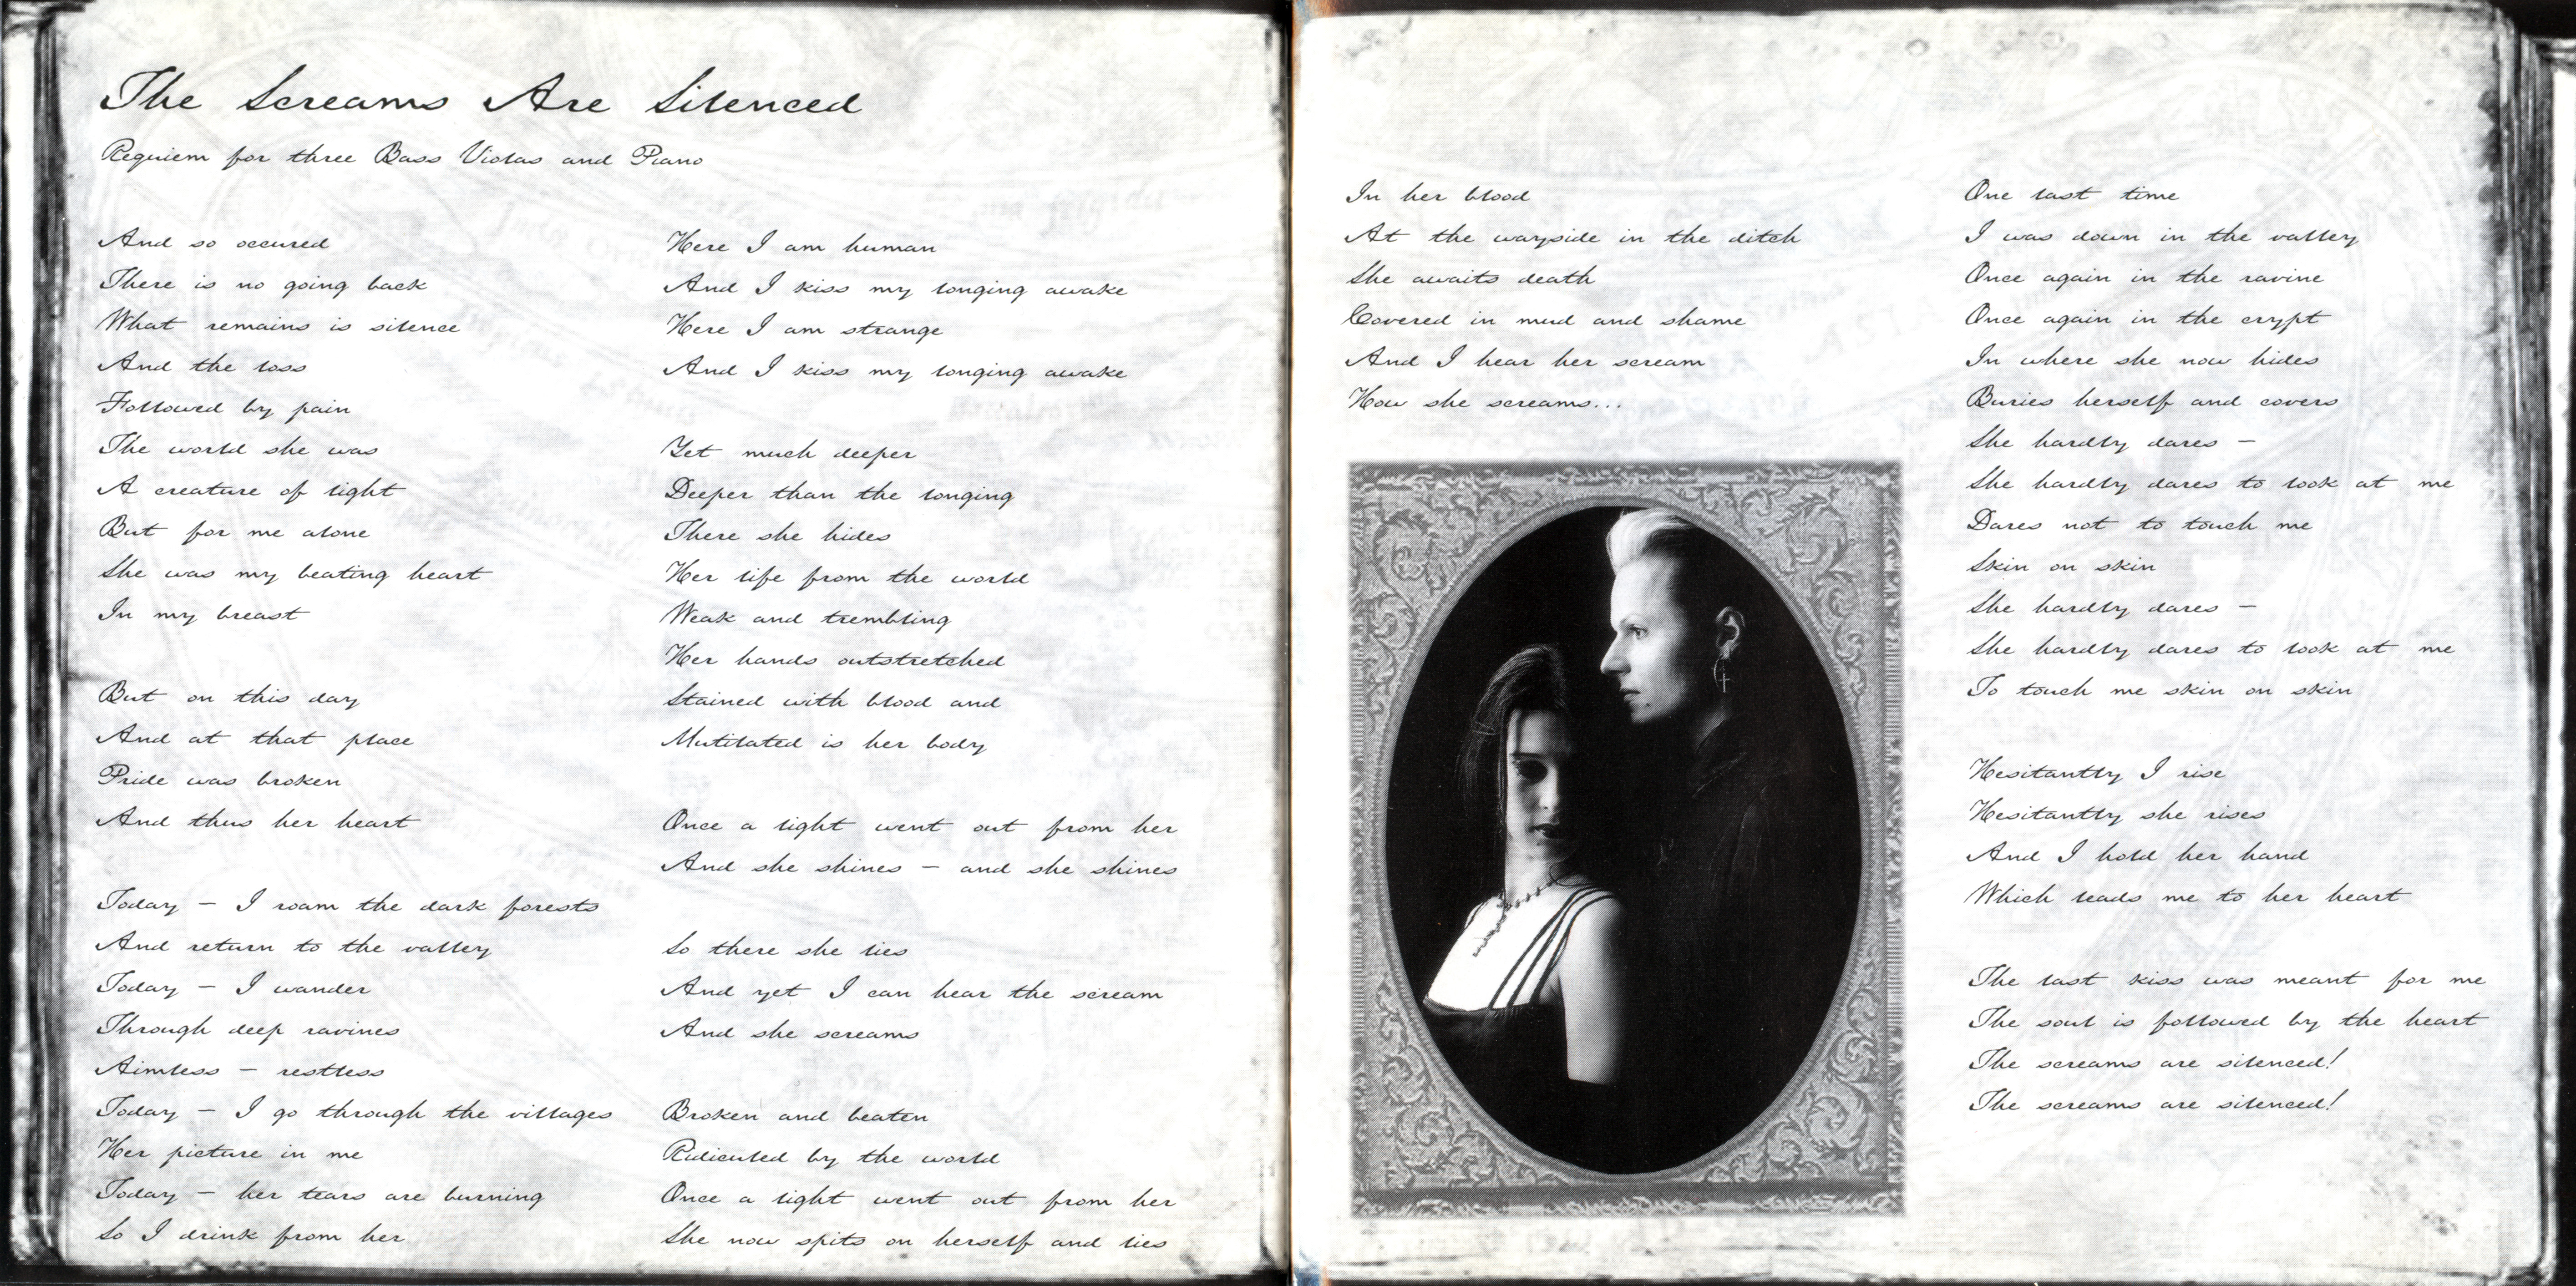 The Screams Are Silenced
Requiem for three Bass Violas and Piano
And so occured
There is no going back
What remains is silence
And the loss
Followed by pain
The world she was
A creature of light
But for me alone
She was my beating heart
In my breast
But on this day
And at that place
Pride was broken
And thus her heart
Today – I roam the dark forests
And return to the valley
Today – I wander
Through deep ravines
Aimless – restless
Today – I go through the villages
Her picture in me
Today – her tears are burning
So I drink from her
Here I am human
And I kiss my longing awake
Here I am strange
And I kiss my longing awake
Yet much deeper
Deeper than the longing
There she hides
Her life from the world
Weak and trembling
Her hands outstretched
Stained with blood and
Mutilated is her body
Once a light went out from her
And she shines – and she shines
So there she lies
And yet I can hear the scream
And she screams
Broken and beaten
Ridiculed by the world
Once a light went out from her
She now spits on herself and lies
In her blood
At the wayside in the ditch
She awaits death
Covered in mud and shame
And I hear her scream
How she screams...
One last time
I was down in the valley
Once again in the ravine
Once again in the crypt
In where she now hides
Buries herself and covers
She hardly dares –
She hardly dares to look at me
Dares not to touch me
Skin on skin
She hardly dares –
She hardly dares to look at me
To touch me skin on skin
Hesitantly I rise
Hesitantly she rises
And I hold her hand
Which leads me to her heart
The last kiss was meant for me
The soul is followed by the heart
The screams are silenced!
The screams are silenced!